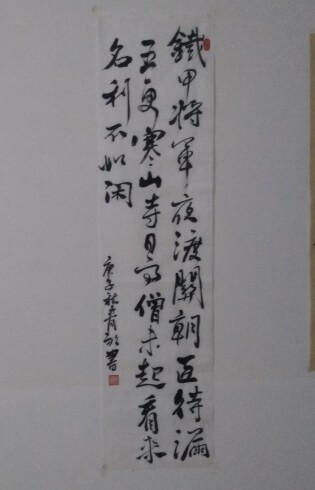 鐵甲将軍夜渡關朝臣待漏
五更寒山寺日高僧未起看来
名利不如闲
庚子秋書